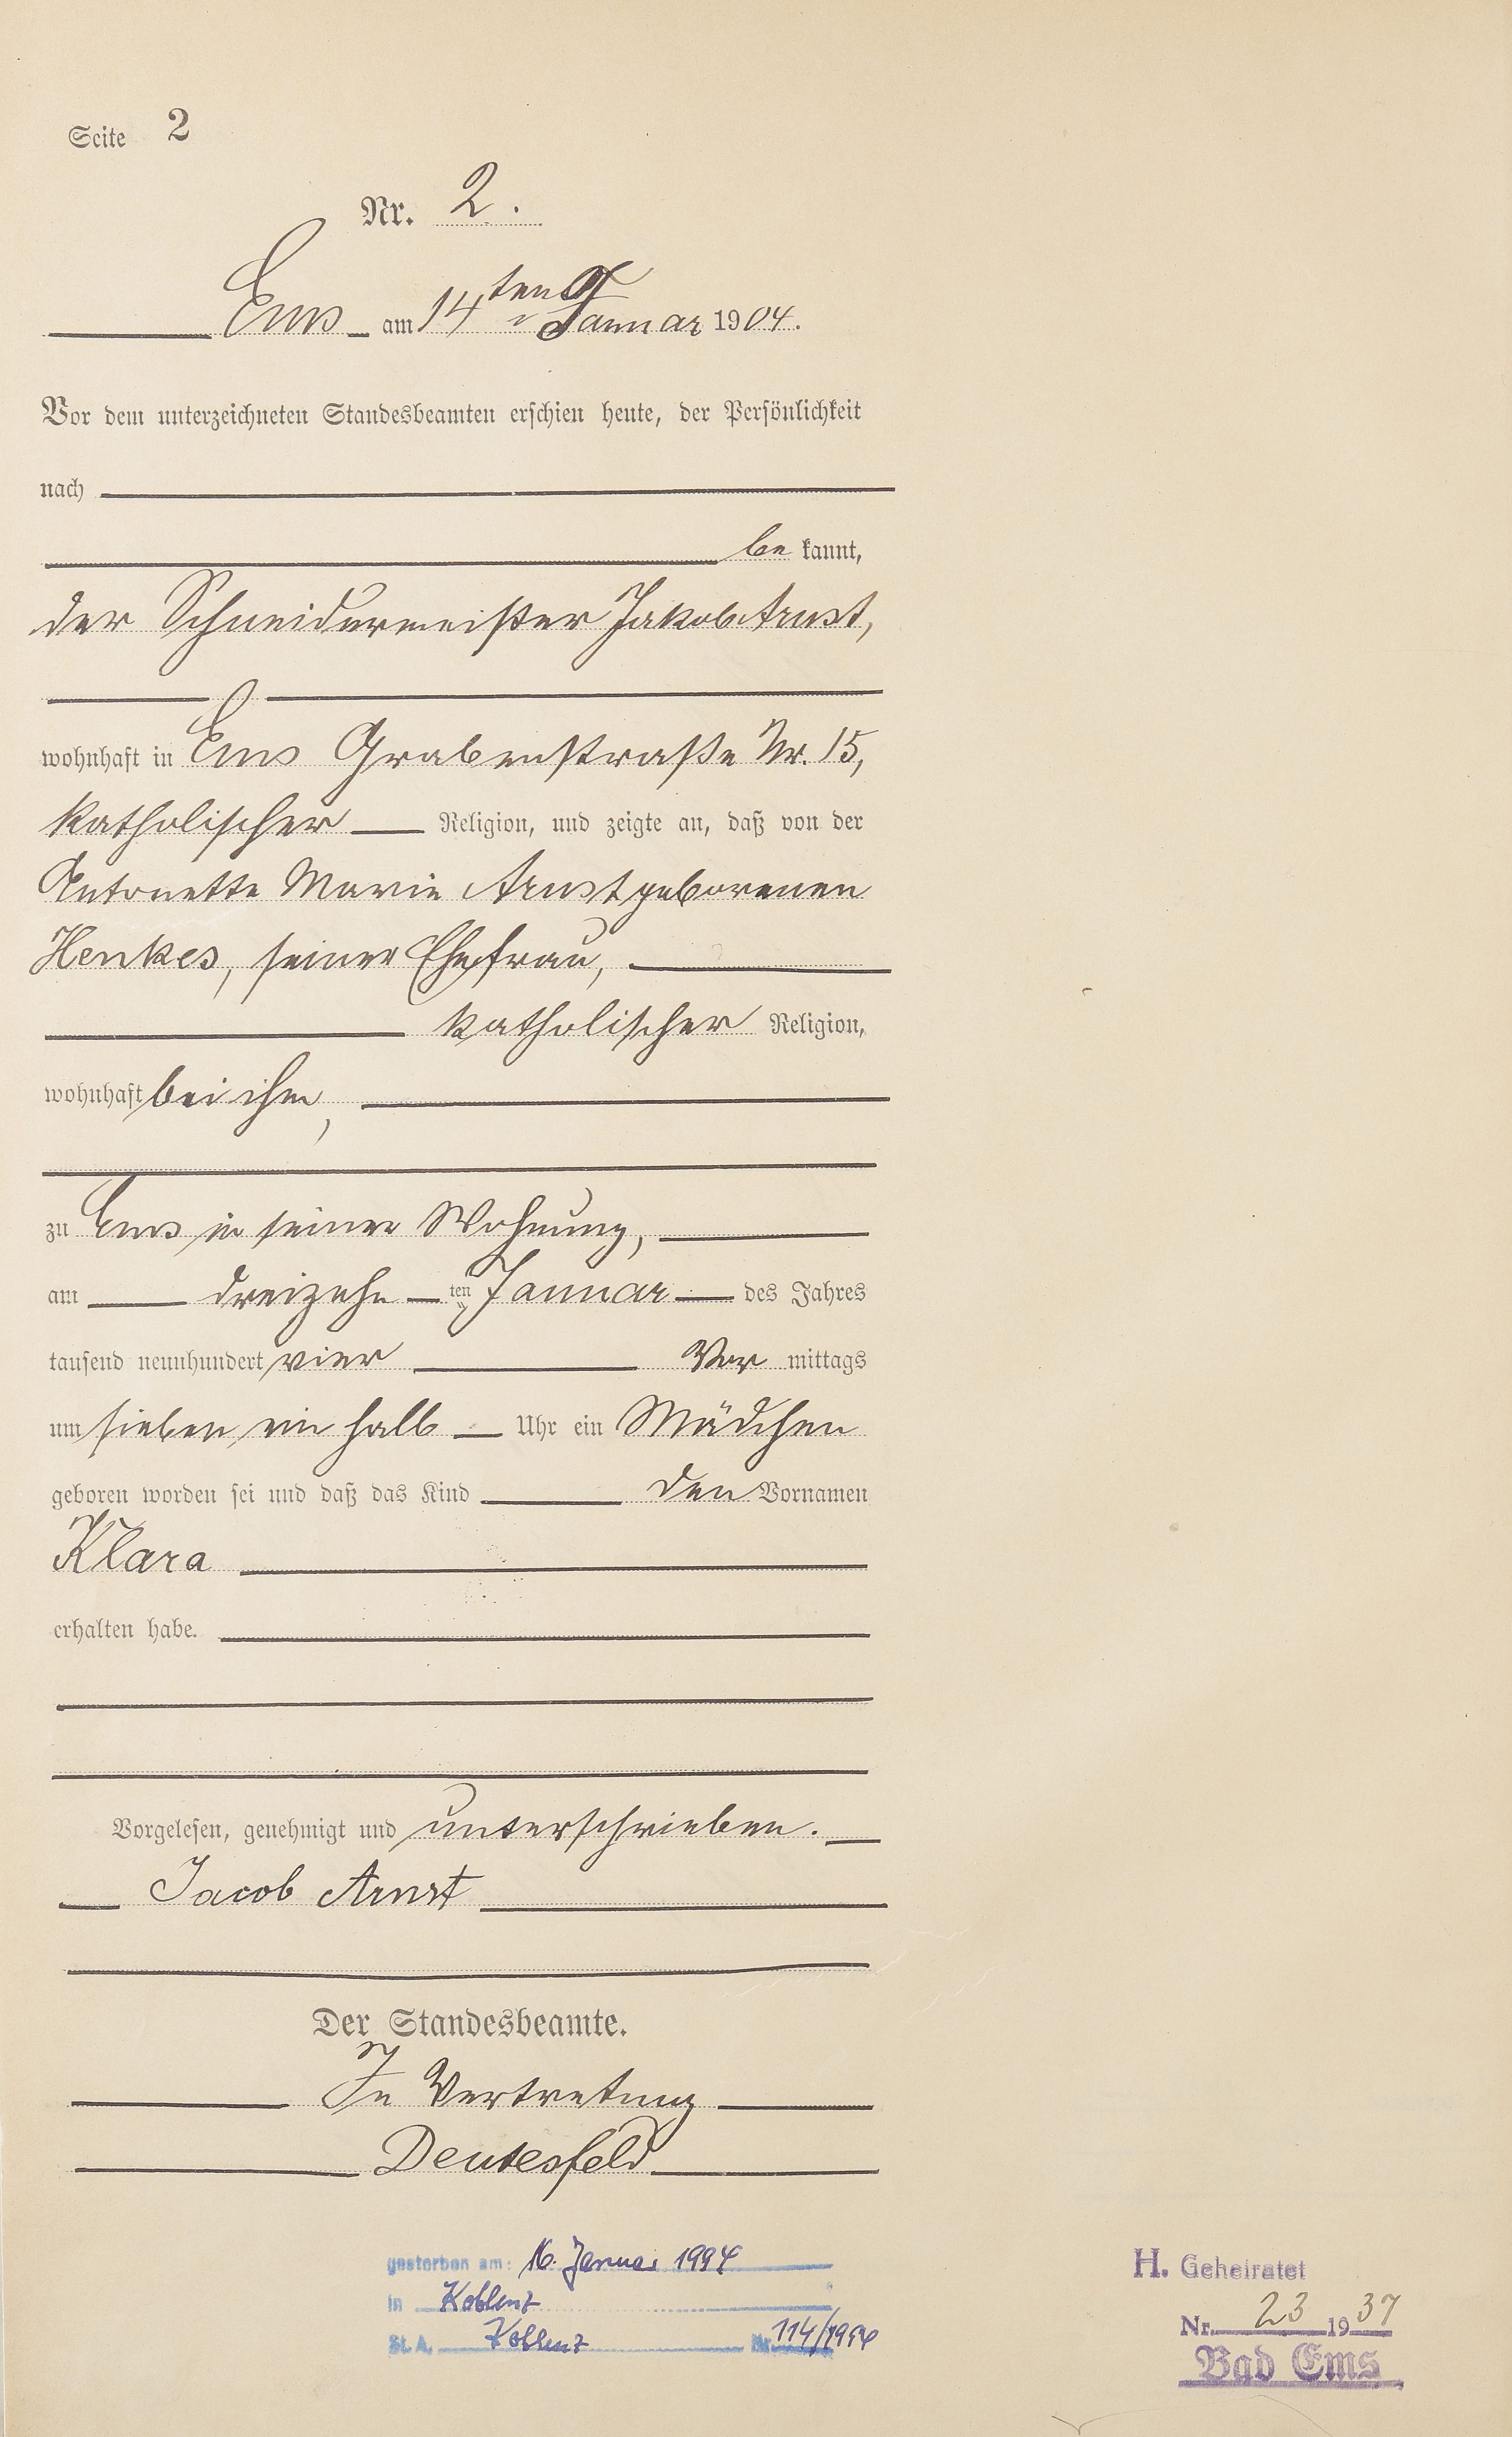 Seite 2
Nr. 2.
Ems am 14ten Januar 1904.
Vor dem unterzeichneten Standesbeamten erschien heute, der Persönlichkeit
nach
bekannt,
der Schneidermeister Jakob Arnst,
wohnhaft in Ems Grabenstraße Nr. 15,
katholischer Religion, und zeigte an, daß von der
Antonette Marie Arnst geborenen
Henkes, seiner Ehefrau,
katholischer Religion,
wohnhaft bei ihm,
zu Ems in seiner Wohnung,
am dreizehn ten Januar des Jahres
tausend neunhundert vier Vor mittags
um sieben ein halb Uhr ein Mädchen
geboren worden sei und daß das Kind den Vornamen
Klara
erhalten habe.
Vorgelesen, genehmigt und unterschrieben.
Jacob Arnst
Der Standesbeamte.
In Vertretung
Deutesfeld
gestorben am: 16. Januar 1994
in Koblenz
St. A. Koblenz Nr. 114/1994
H. Geheiratet
Nr. 23 1937
Bad Ems